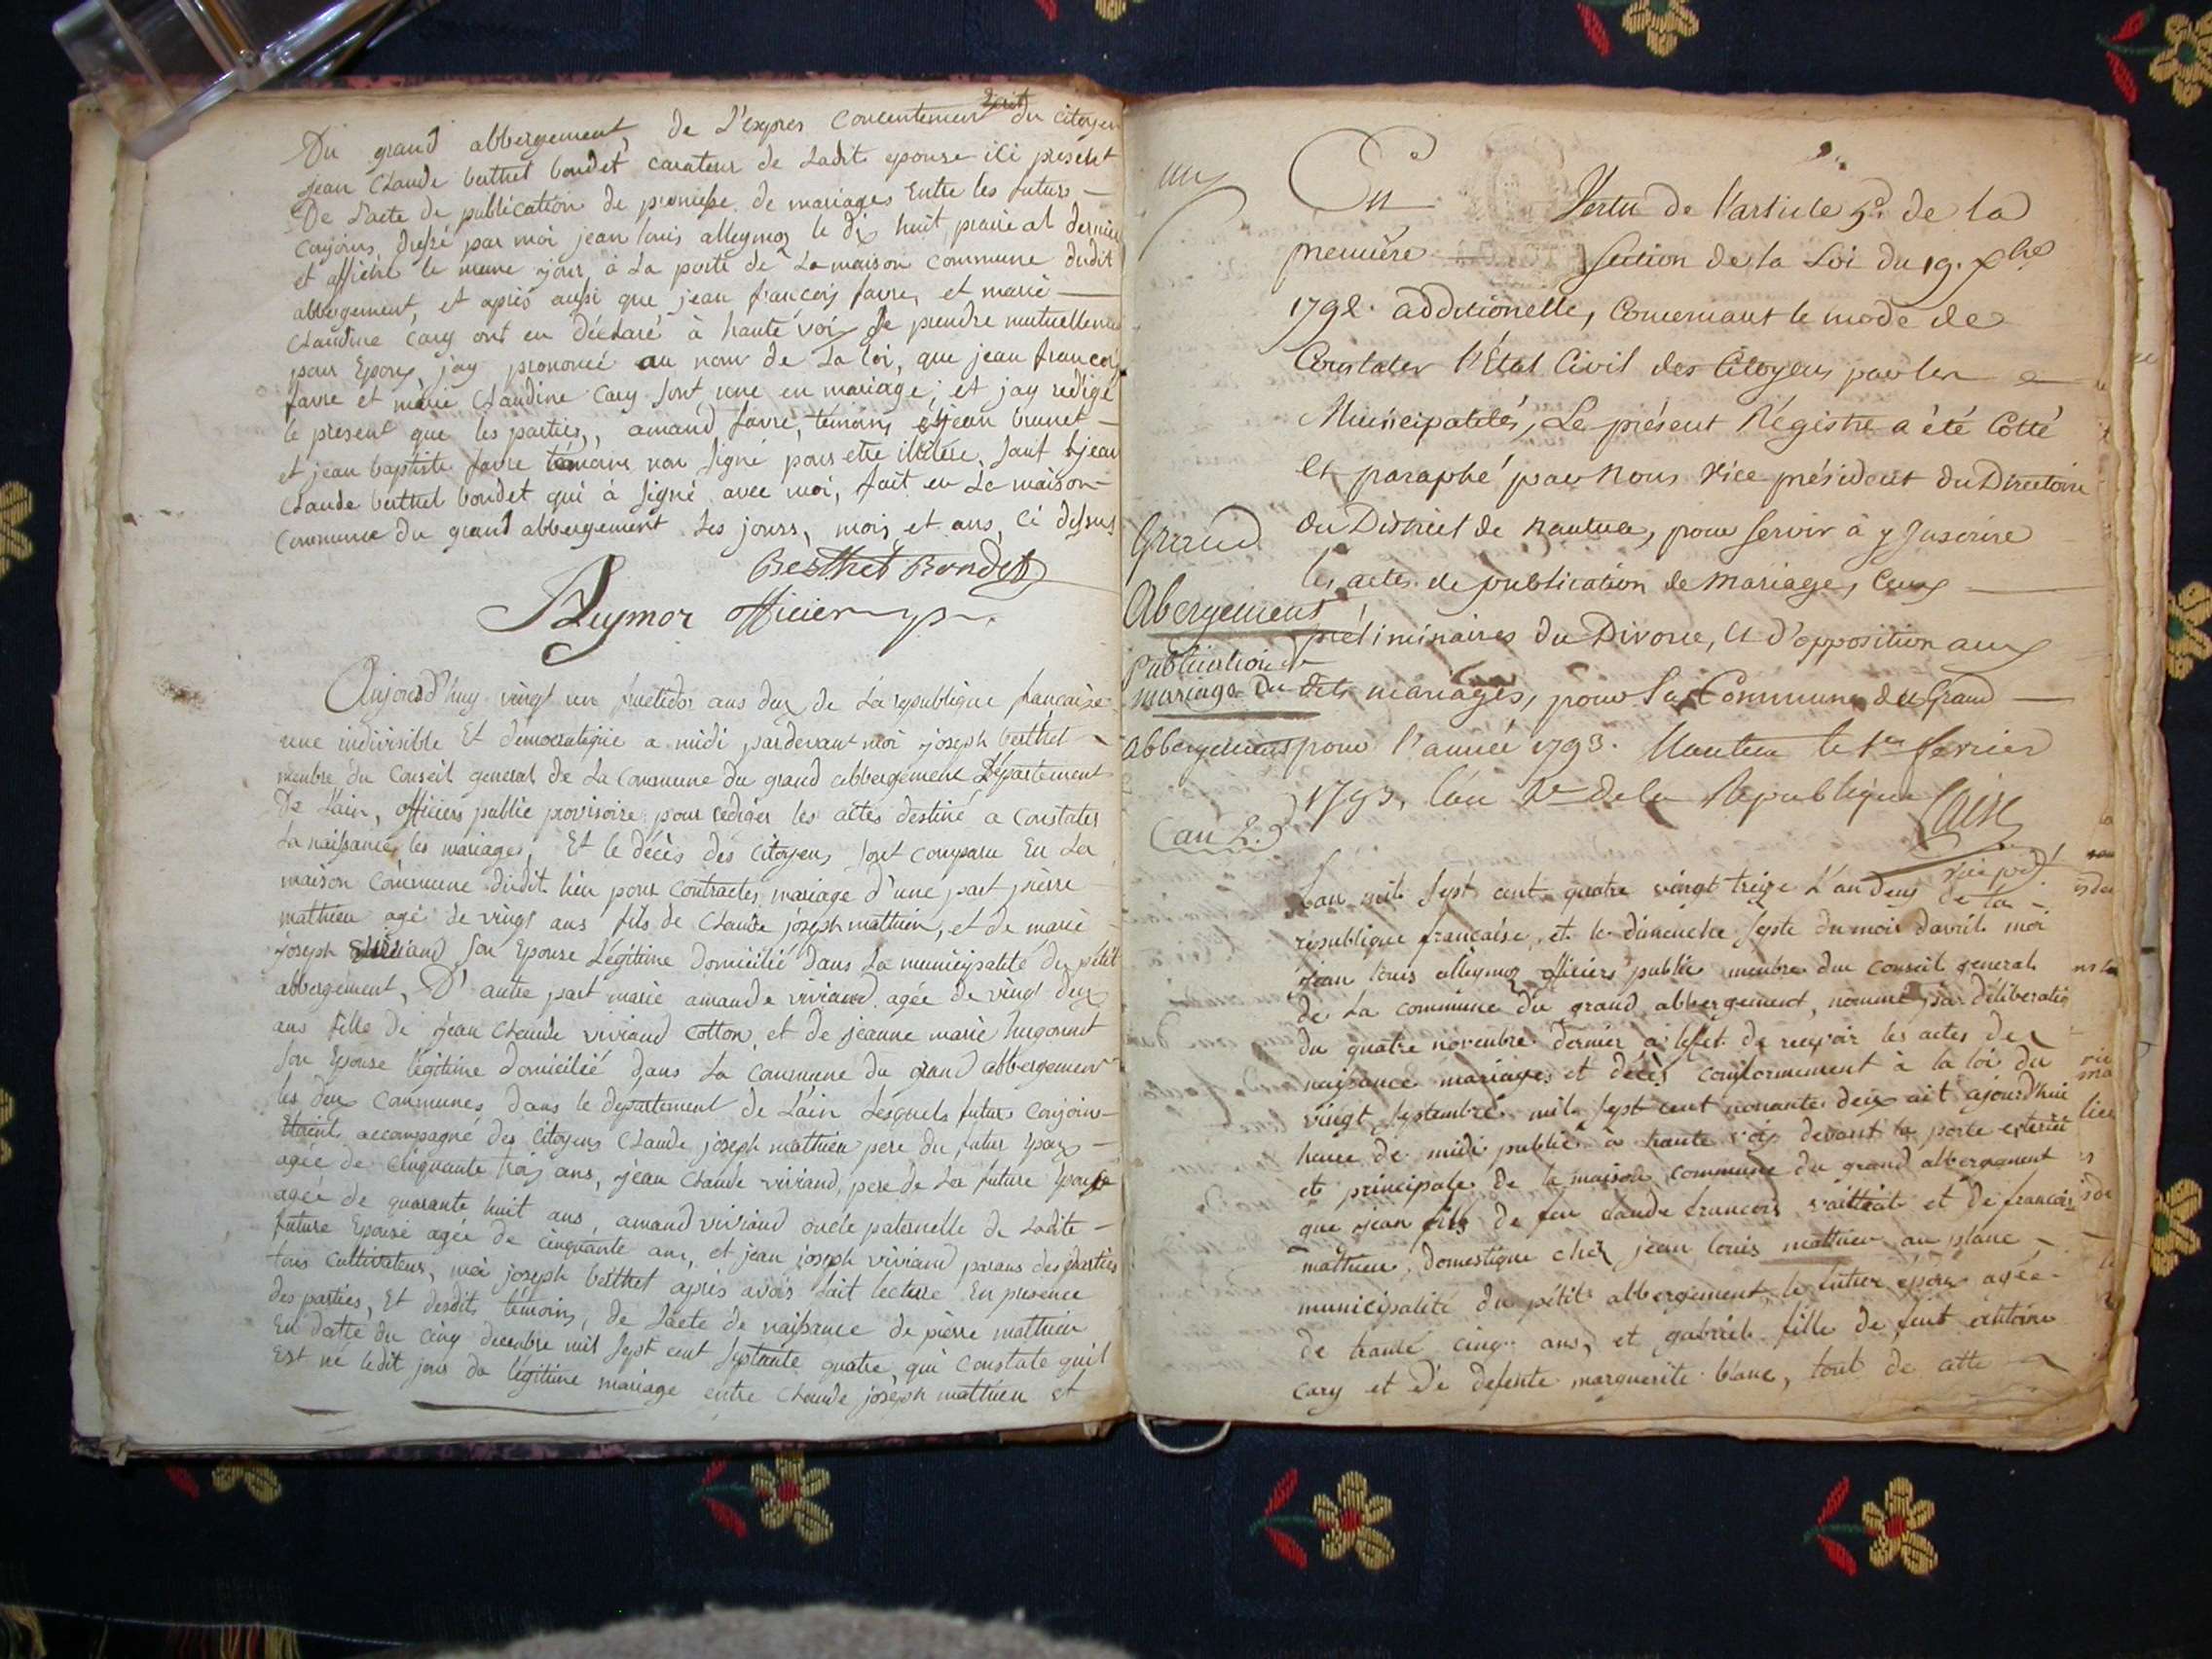 Du grand abbergement, de L'expres concentement dudit du citoyen
jean Claude berthet bondet curateur de Ladite epouse ici present
De L'acte de publication de promesse de mariages Entre les futurs
conjoins, dressé par moi jean louis alleymoz le dix huit prairial dernier
et affiché le meme jour, à La porte de La maison commune dudit
abbergement, et après aussi que jean françois favre, et marie
Claudine cary ont eu déclaré à haute voix se prendre mutuellement
pour Epoux, jay prononcé au nom de La loi, que jean françois
favre et marie Claudine cary sont unie en mariage; et jay redigé
le present que les parties, amand favre, témoins et jean brunet
et jean baptiste favre témoins non signé pour etre illitére, sauf jean
Claude berthet bondet qui à signé avec moi, fait en La maison
commune du grand abbergement les jours, mois, et ans, ci dessus
Berthet Bondet
Aleymoz officier p.
Aujourd'huy vingt un fructidor ans deux de La republique française
une indivisible Et democratique a midi pardevant moi joseph berthet
membre du Conseil general de La commune du grand abbergement Département
De L'ain, officiers public provisoire pour rediger les actes destiné a constater
La naissance, les mariages, Et le décès des Citoyens sont comparu En La
maison commune dudit lieu pour contracter mariage d'une part pierre
mathieu agé de vingt ans fils de Claude joseph mathieu, et de marie
joseph son Epouse Légitime domicilié dans La municipalité du pétit
abbergement, D'autre part marie amande viviand agée de vingt deux
ans fille de jean Claude viviand cotton, et de jeanne marie hugonnet
son Epouse légitime domicilié dans La commune du grand abbergement
les deux communes dans le departement de L'ain Lesquels futurs conjoins
Etaient accompagné des Citoyens Claude joseph mathieu pere du futur Epoux
agée de Cinquante trois ans, jean Claude viviand, pere de La future Epouse
agée de quarante huit ans, amand viviand oncle paternelle de Ladite
future Epouse agée de cinquante ans, et jean joseph viviand parans des parties
tous cultivateurs, moi joseph berthet après avoir fait lecture En presence
des parties, Et desdits témoins, de L'acte de naissance de pierre mathieu
En datte du cinq decembre mil sept cent septante quatre, qui constate qu'il
Est né ledit jour du légitime mariage entre Claude joseph mathieu et
En Vertu de l'article 5e. de la
première section de la Loi du 19. xbre
1792. additionelle, Concernant le mode de
Constater l'État Civil des Citoyens par les
Municipalités, Le présent Régistre a été Cotté
et paraphé par Nous vice président du Directoire
du District de Nantua, pour servir à y Inscrire
les actes de publication de Mariage, Ceux
préliminaires du Divorce, et d'opposition aux
dits mariages, pour la Commune du Grand
abbergement pour l'année 1793. Nantua le 1er fevrier
1793, l'an 2e de la Republique
vice pdt
Grand
Abergement
publication et
mariage Du
(an 2.)
Lan mil sept cent quatre vingt treize L'an deux de la
république française, et le dimenche septe du mois d'avril moi
jean louis alleymoz officiers public membre du conseil general
de La commune du grand abbergement, nommé par déliberatio
du quatre novembre dernier à leffet de reçevoir les actes de
naissance mariages et décès conformement à la loi du
vingt septembre mil sept cent nonante deux ait ajourd'hui
heure de midi publié à haute voix devant la porte exterieure
et principale de la maison commune du grand abbergement
que jean fils de feu claude françois et de françois
mathieu, domestique chez jean louis mathieu au planc
municipalité du pétit abbergement, le futur époux agée
de trante cinq ans, et gabriele fille de feut
cary et de defente marguerite blanc, tout de cette